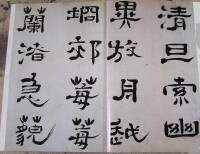 清旦索幽
異放舟越
坰郊莓莓
蘭渚急藐